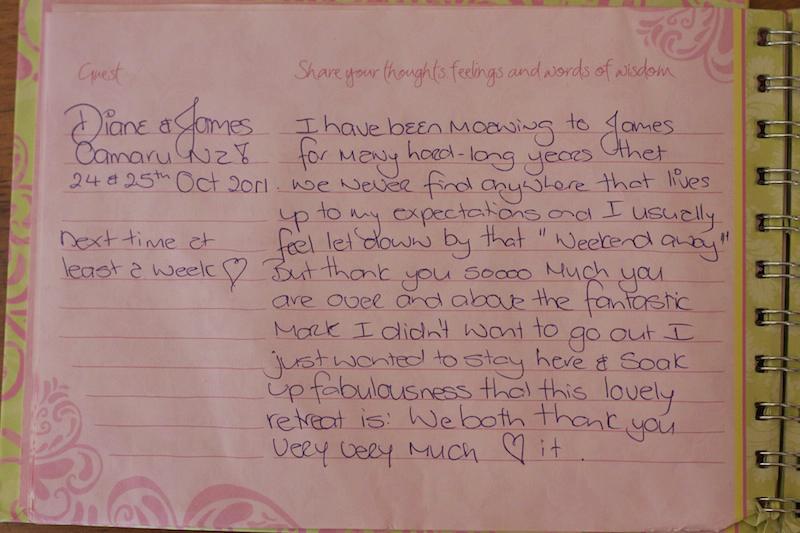 Guest
Share your thoughts, feelings and words of wisdom
Diane & James
Oamaru NZ
24 & 25th Oct 2011.
next time at
least a week ♡
I have been moewing to James
for many hard-long years thet
we never find anywhere that lives
up to my expectations and I usually
feel let down by that "Weekend away"
But thank you soooo much you
are over and above the fantastic
Mark I didn't want to go out I
just wanted to stay here & Soak
up fabulousness that this lovely
retreat is: We both thank you
Very Very Much ♡ it.